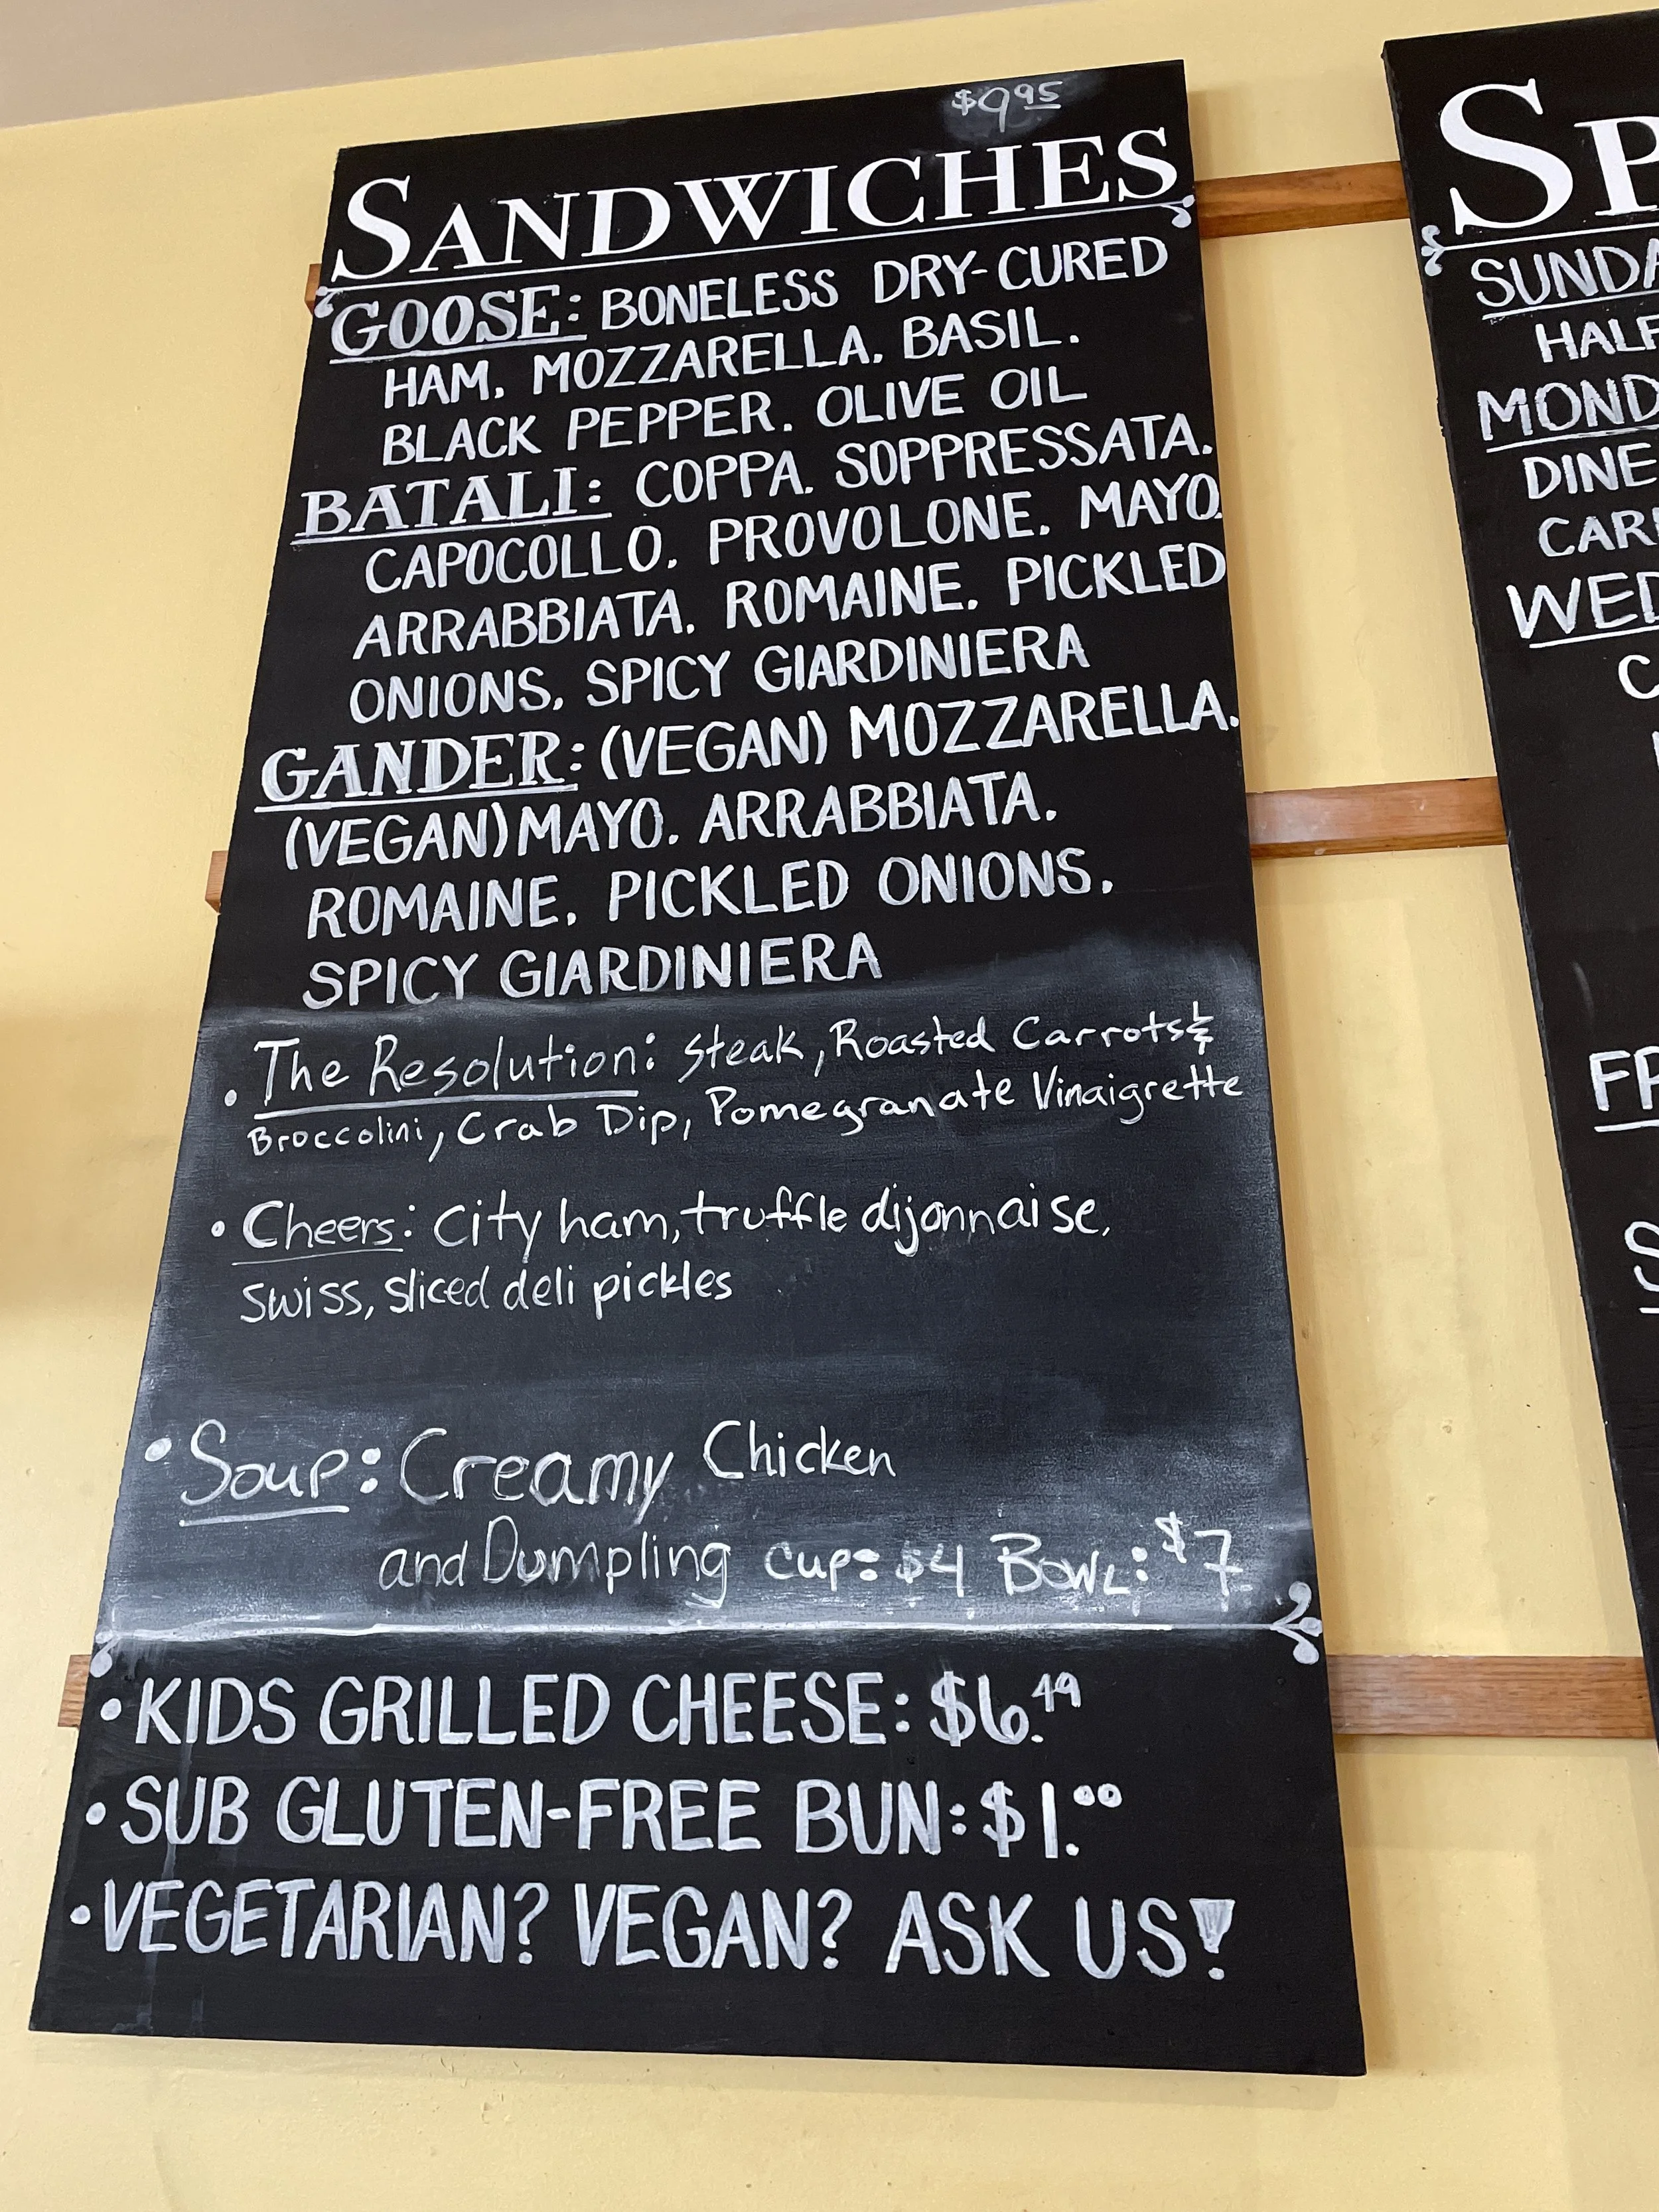 $9.95
SANDWICHES
GOOSE: BONELESS DRY-CURED
HAM. MOZZARELLA. BASIL.
BLACK PEPPER. OLIVE OIL
BATALI: COPPA. SOPPRESSATA.
CAPOCOLLO. PROVOLONE. MAYO.
ARRABBIATA. ROMAINE. PICKLED
ONIONS. SPICY GIARDINIERA
GANDER: (VEGAN) MOZZARELLA.
(VEGAN) MAYO. ARRABBIATA.
ROMAINE. PICKLED ONIONS.
SPICY GIARDINIERA
• The Resolution: Steak, Roasted Carrots &
Broccolini, Crab Dip, Pomegranate Vinaigrette
• Cheers: City ham, truffle dijonnaise,
Swiss, sliced deli pickles
• Soup: Creamy Chicken
and Dumpling cup: $4 Bowl: $7
• KIDS GRILLED CHEESE: $6.49
• SUB GLUTEN-FREE BUN: $1.00
• VEGETARIAN? VEGAN? ASK US!
SP
SUNDA
HALF
MOND
DINE
CAR
WED
C
FR
S